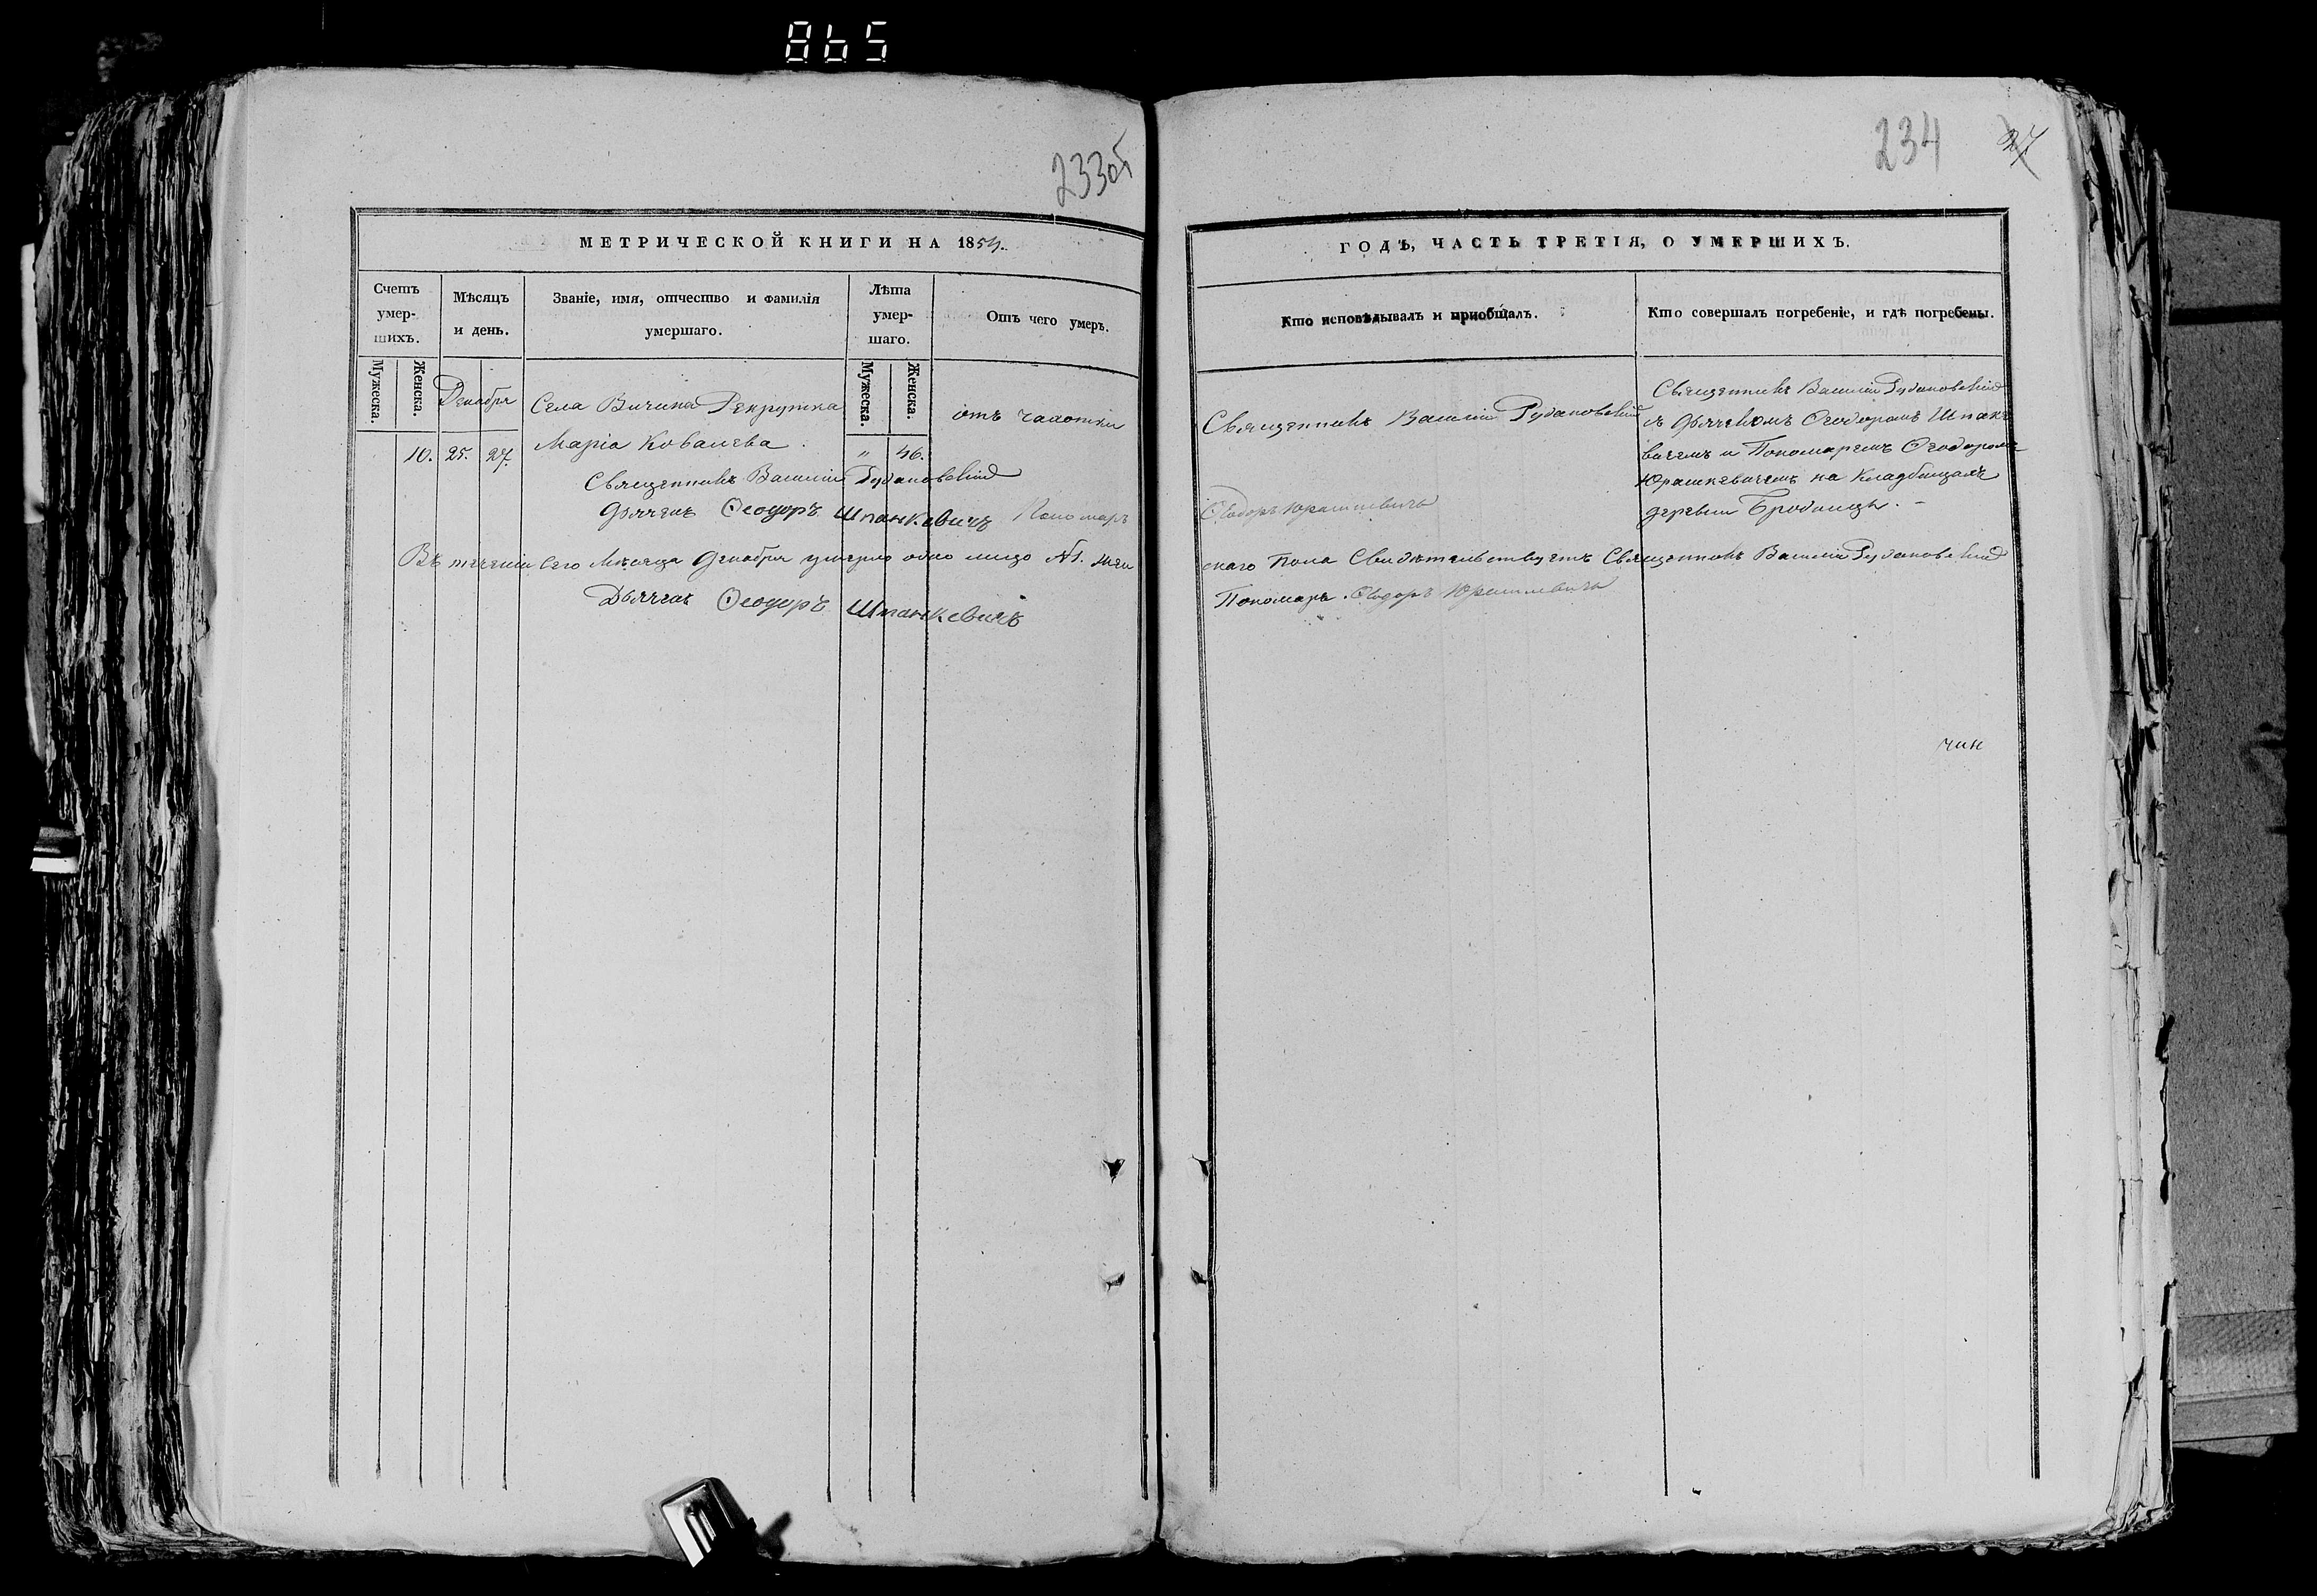 865
233об
МЕТРИЧЕСКОЙ КНИГИ НА 1854.
Счетъ умер-шихъ.
Мѣсяцъ и день.
Званіе, имя, отчество и фамилія умершаго.
Лѣта умер-шаго.
Отъ чего умеръ.
Мужеска.
Женска.
Мужеска.
Женска.
Декабря
Села Вичина Рекрутка
отъ чахотки
Марія Ковалева.
10. 25. 27.
" 46.
Священникъ Василій Рудановскій
Дьячекъ Ѳеодоръ Шпанкевичъ Пономарь
Въ теченіи сего Мѣсяца Декабря умерло одно лицо №1. жен
Дьячекъ Ѳеодоръ Шпанкевичъ
234
27
ГОДЪ, ЧАСТЬ ТРЕТІЯ, О УМЕРШИХЪ.
Кто исповѣдывалъ и приобщалъ.
Кто совершалъ погребеніе, и гдѣ погребены.
Священникъ Василій Рудановскій
Священникъ Василій Рудановскій
съ Дьячкомъ Ѳеодоромъ Шпанке
вичемъ и Пономаремъ Ѳеодоромъ
Юрашкевичемъ на Кладбищахъ
деревни Бродницы. -
Ѳеодоръ Юрашкевичъ
скаго Пола Свидѣтельствуетъ Священникъ Василій Рудановскій
Пономарь. Ѳеодоръ Юрашкевичъ
чин